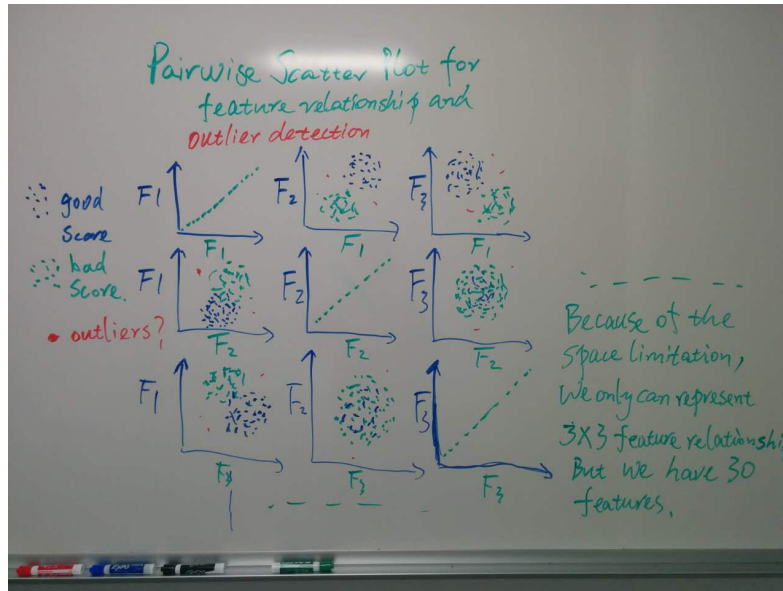 Pairwise Scatter Plot for
feature relationship and
outlier detection
good
score
bad
score.
outliers?
F1
F1
F2
F1
F3
F1
F1
F2
F2
F2
F3
F2
F1
F3
F2
F3
F3
F3
Because of the
space limitation,
We only can represent
3X3 feature relationship
But we have 30
features.